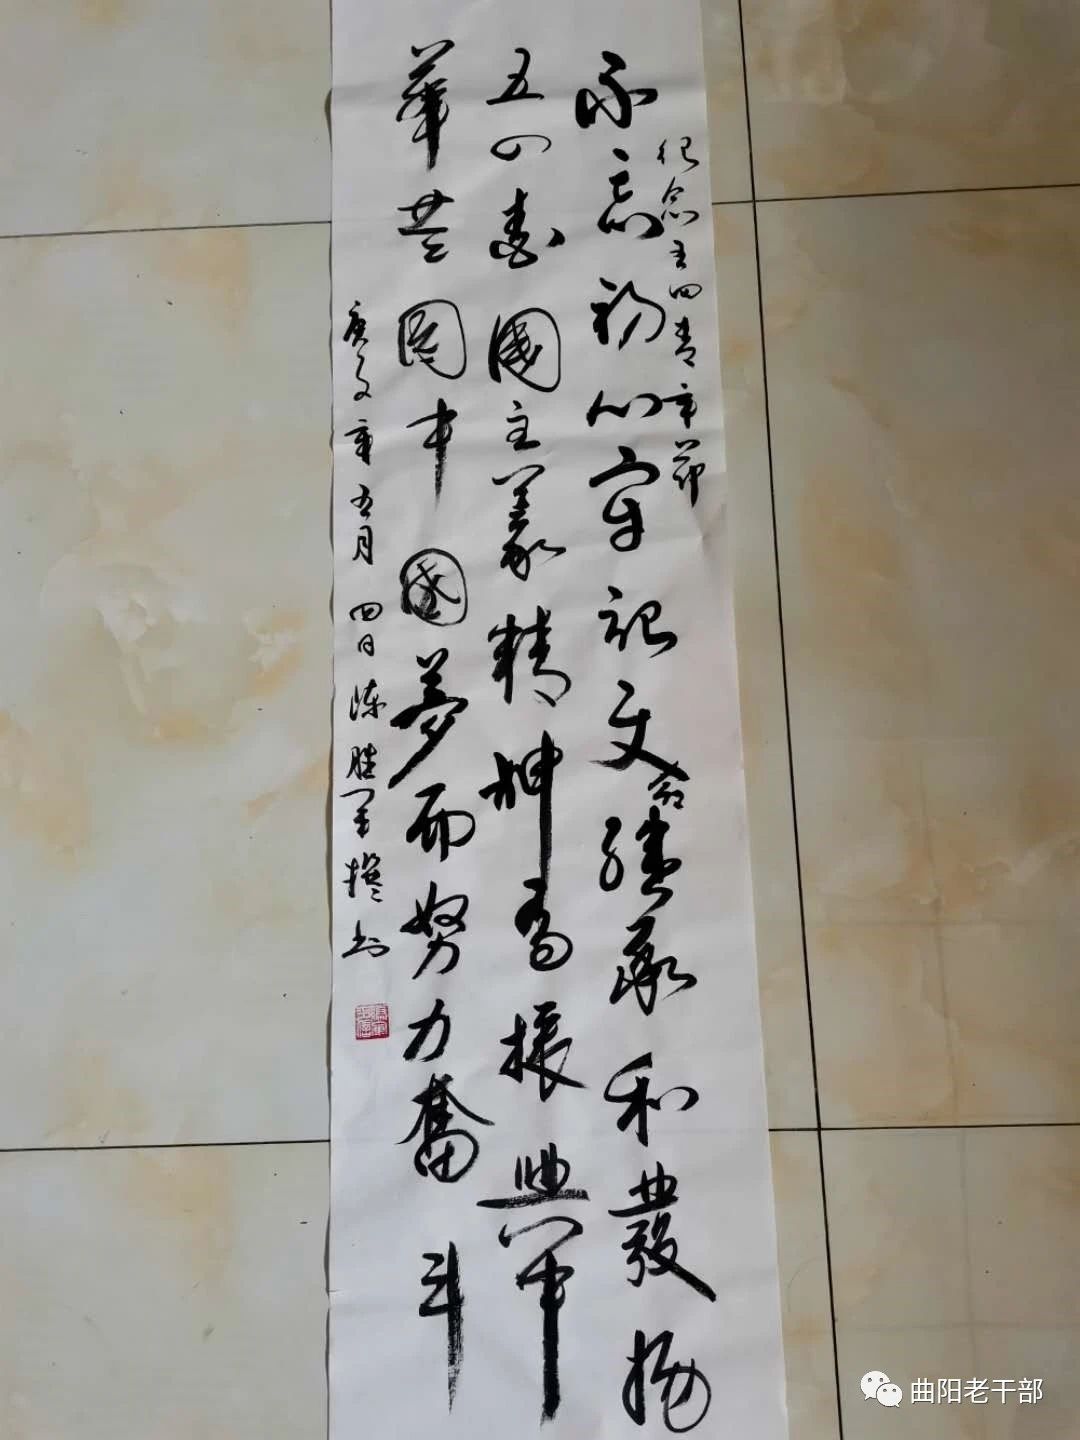 纪念五四青年节
不忘初心牢记使命继承和发扬
五四爱国主义精神为振兴中
华共圆中国梦而努力奋斗
庚子年五月四日陈胜军撰书
曲阳老干部